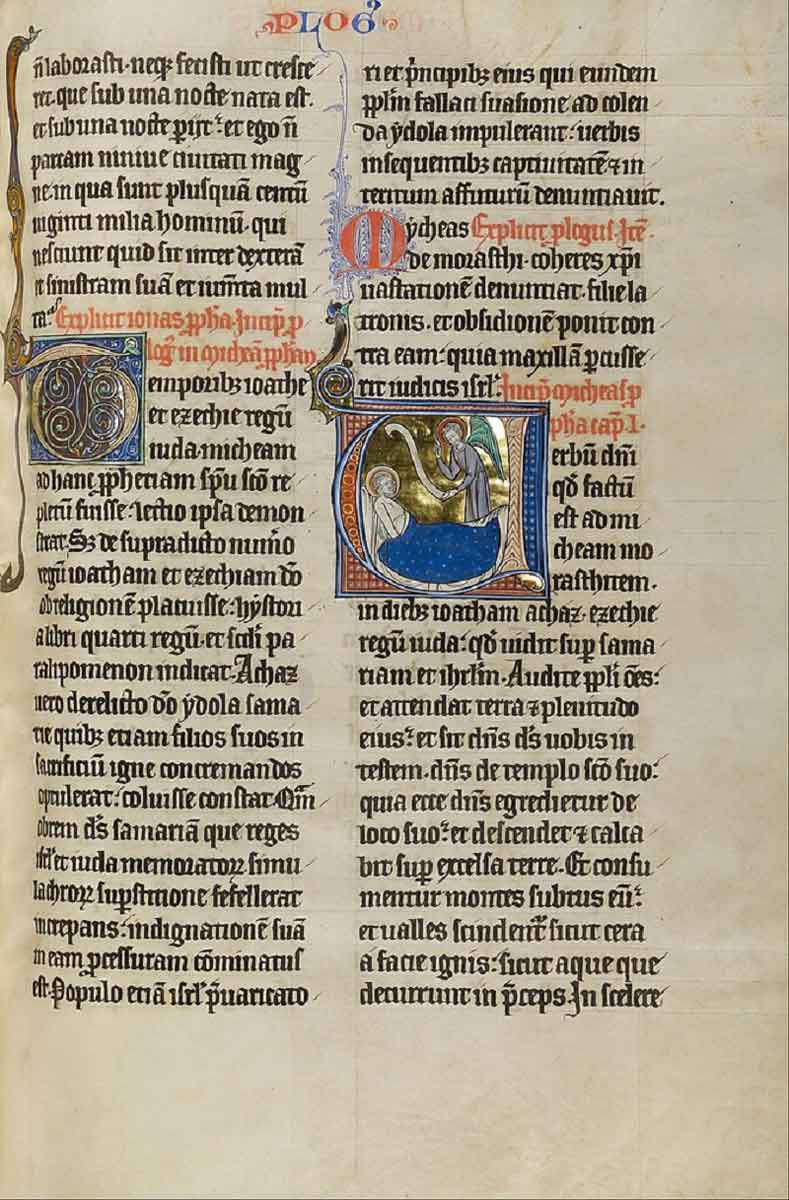 PLOGꝰ
n̄ laborasti· neqꝫ fecisti ut cresce
ret· que sub una nocte nata est·
et sub una nocte ꝑijt· et ego n̄
parcam niniue ciuitati mag
ne· in qua sunt plusquā centū
uiginti milia hominū· qui
nesciunt quid sit inter dexterā
et sinistram suā et iumēta mul
ta· Explicit ionas ꝓph̄a· Incip̄ ꝓ
loḡ in micheā ꝓph̄am
Temporibꝫ ioathe
et ezechie regū
iuda· micheam
ad hanc ꝓphetiam sp̄u sc̄o re
pletū fuisse· lectio ipsa demon
strat· Sꝫ de supradicto num̄o
regū ioatham et ezechiam dō
ob religionē placuisse· hystori
a libri quarti regū· et scd̄i pa
ralipomenon indicat· Achaz
uero derelicto dō ydola sama
rie quibꝫ etiam filios suos in
sacrificiū igne concremandos
optulerat· coluisse constat· Qm̄
obrem d̄s samariā que reges
isrl̄ et iuda memoratoꝝ simu
lachroꝝ suꝑstitione fefellerat
increpans· indignationē suā
in eam ꝓcessuram cōminatus
est· Populo etiā isrl̄ p̄uaricato
ri et p̄ncipibꝫ eius qui eundem
ꝓplm̄ fallaci suasione ad colen
da ydola impulerant· uerbis
insequentibꝫ captiuitatē ⁊ in
teritum affuturū denuntiauit·
Mycheas Explicit ꝓlogus· Itē·
de morasthi· coheres xp̄i
uastationē denuntiat· filie la
tronis· et obsidionē ponit con
tra eam· quia maxillā ꝑcusse
rit iudicis isrl̄· Incip̄ micheas ꝓ
pha cap̄· I·
Verbū dn̄i
qd̄ factū
est ad mi
cheam mo
rasthitem·
in diebꝫ ioatham achaz· ezechie
regū iuda· qd̄ uidit suꝑ sama
riam et ihrlm̄· Audite ꝓpl̄i ōēs·
et attendat terra ⁊ plenitudo
eius· et sit dn̄s d̄s uobis in
testem· dn̄s de templo sc̄o suo·
quia ecce dn̄s egredietur de
loco suo· et descendet ⁊ calca
bit suꝑ excelsa terre· Et consu
mentur montes subtus eū·
et ualles scindent̄ sicut cera
a facie ignis· sicut aque que
decurrunt in p̄ceps· In scelere